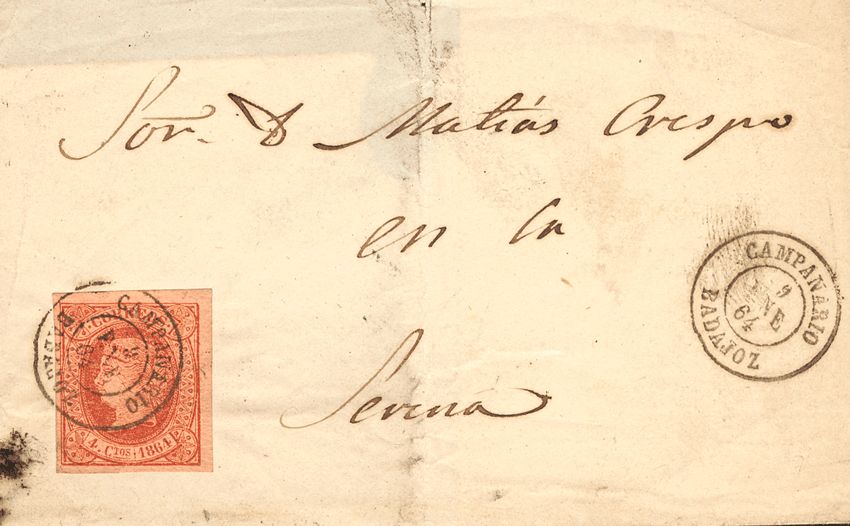 Sor. D Matías Crespo
en la
Serena
CAMPANARIO
9
ENE
64
BADAJOZ
CAMPANARIO
BADAJOZ
4. CTOS 1864